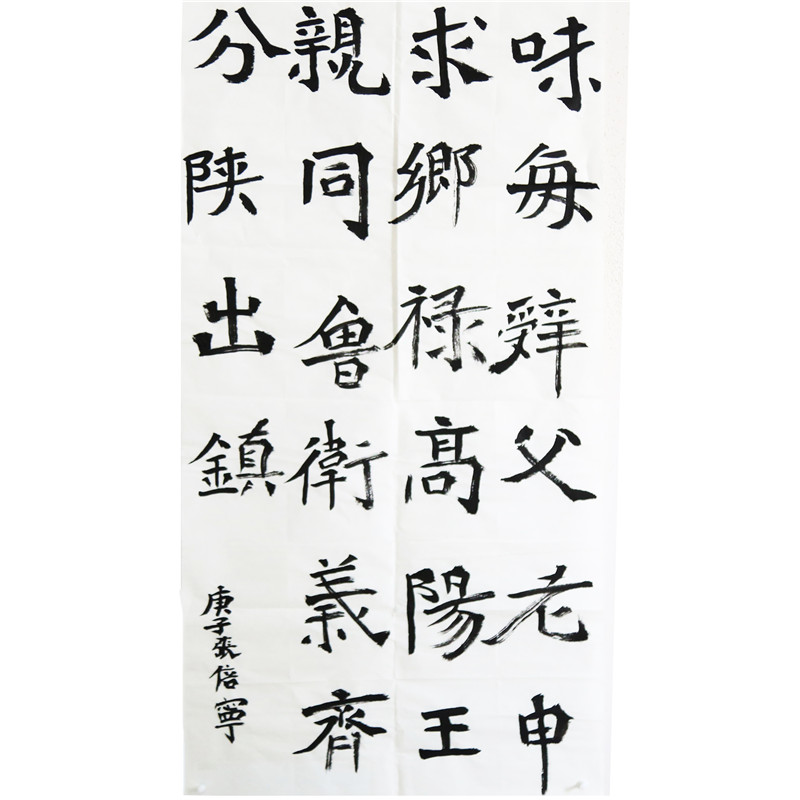 味每辤父老申
求鄉禄高陽王
親同魯衛義齊
分陝出鎮
庚子張倍寧